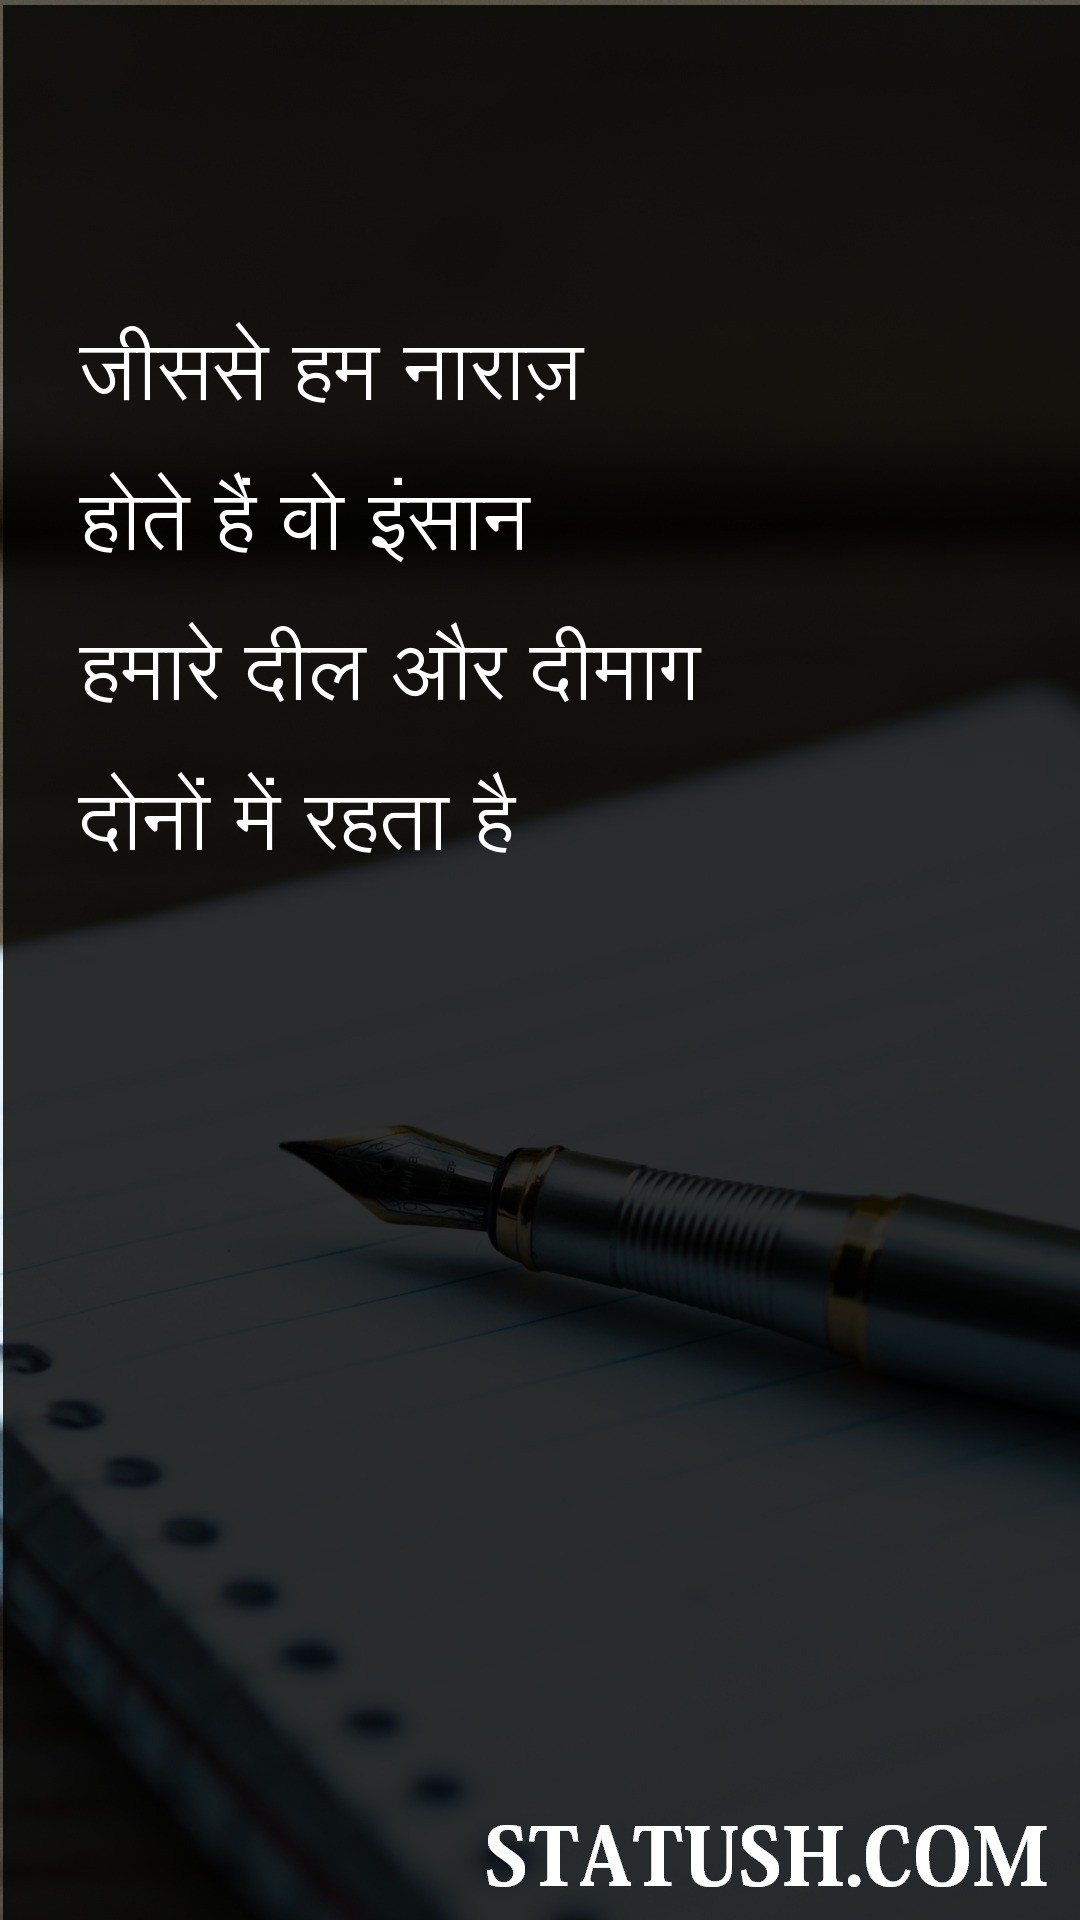 जीससे हम नाराज़
होते हैं वो इंसान
हमारे दील और दीमाग
दोनों में रहता है
STATUSH.COM